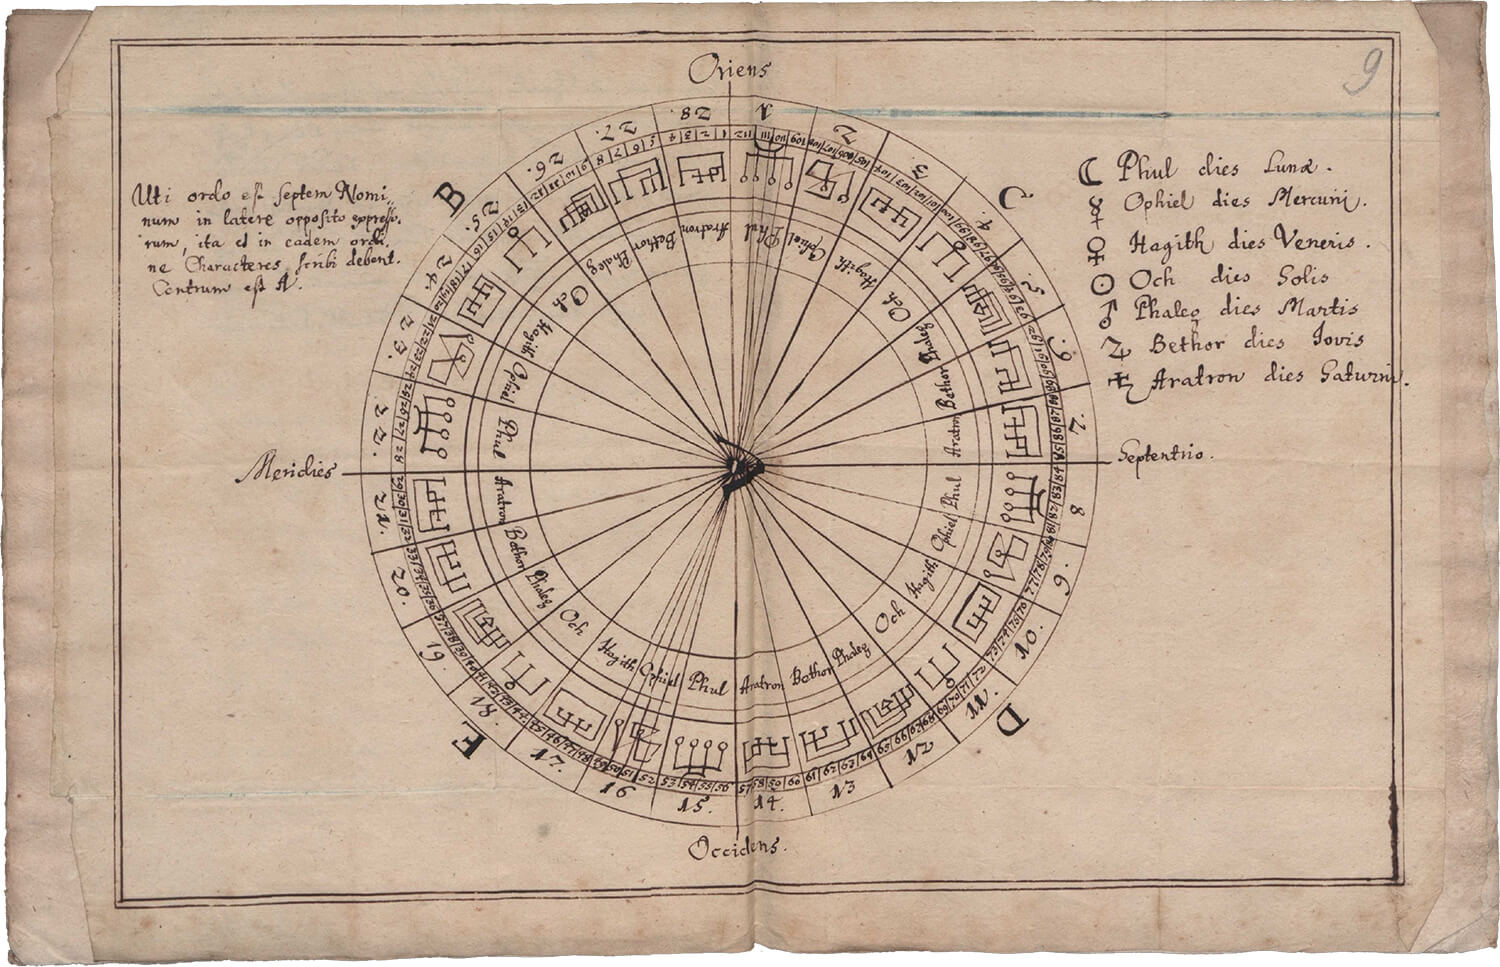 Oriens
9
Uti ordo est septem Nomi,,
num in latere opposito expresso,
rum, ita et in eadem ordi,
ne Characteres scribi debent.
Centrum est A.
☾ Phul dies Lunæ.
☿ Ophiel dies Mercurij.
♀ Hagith dies Veneris.
☉ Och dies Solis
♂ Phaleg dies Martis
♃ Bethor dies Iovis
♄ Aratron dies Saturni.
B
C
D
E
Meridies
Septentrio.
Occidens.
1 2 3. 4. 5. 6. 7. 8 9. 10. 11. 12 13 14. 15. 16 17. 18. 19 20. 21. 22. 23. 24 25. 26. 27. 28
Phul Ophiel Hagith Och Phaleg Bethor Aratron
Phul Ophiel Hagith Och Phaleg Bethor Aratron
Phul Ophiel Hagith Och Phaleg Bethor Aratron
Phul Ophiel Hagith Och Phaleg Bethor Aratron